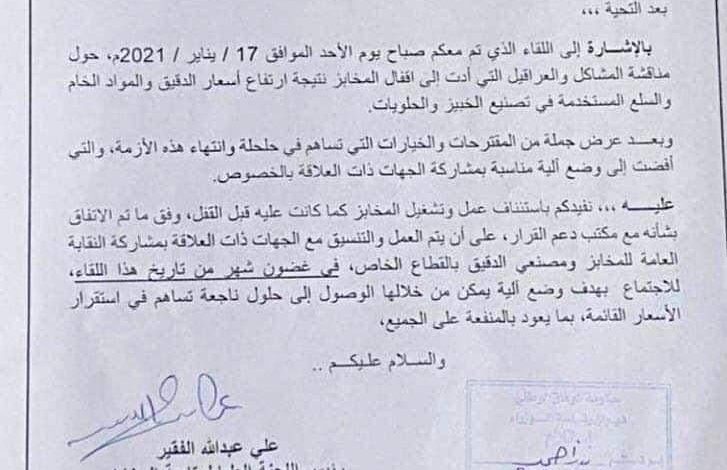 بعد التحية ،،،
بالإشارة إلى اللقاء الذي تم معكم صباح يوم الأحد الموافق 17 / يناير / 2021م، حول
مناقشة المشاكل والعراقيل التي أدت إلى اقفال المخابز نتيجة ارتفاع أسعار الدقيق والمواد الخام
والسلع المستخدمة في تصنيع الخبيز والحلويات.
وبعد عرض جملة من المقترحات والخيارات التي تساهم في حلحلة وانتهاء هذه الأزمة، والتي
أفضت إلى وضع آلية مناسبة بمشاركة الجهات ذات العلاقة بالخصوص.
عليه ،،، نفيدكم باستئناف عمل وتشغيل المخابز كما كانت عليه قبل القفل، وفق ما تم الاتفاق
بشأنه مع مكتب دعم القرار، على أن يتم العمل والتنسيق مع الجهات ذات العلاقة بمشاركة النقابة
العامة للمخابز ومصنعي الدقيق بالقطاع الخاص، في غضون شهر من تاريخ هذا اللقاء،
للاجتماع بهدف وضع آلية يمكن من خلالها الوصول إلى حلول ناجعة تساهم في استقرار
الأسعار القائمة، بما يعود بالمنفعة على الجميع،
والسلام عليكم ..
علي عبدالله الفقير